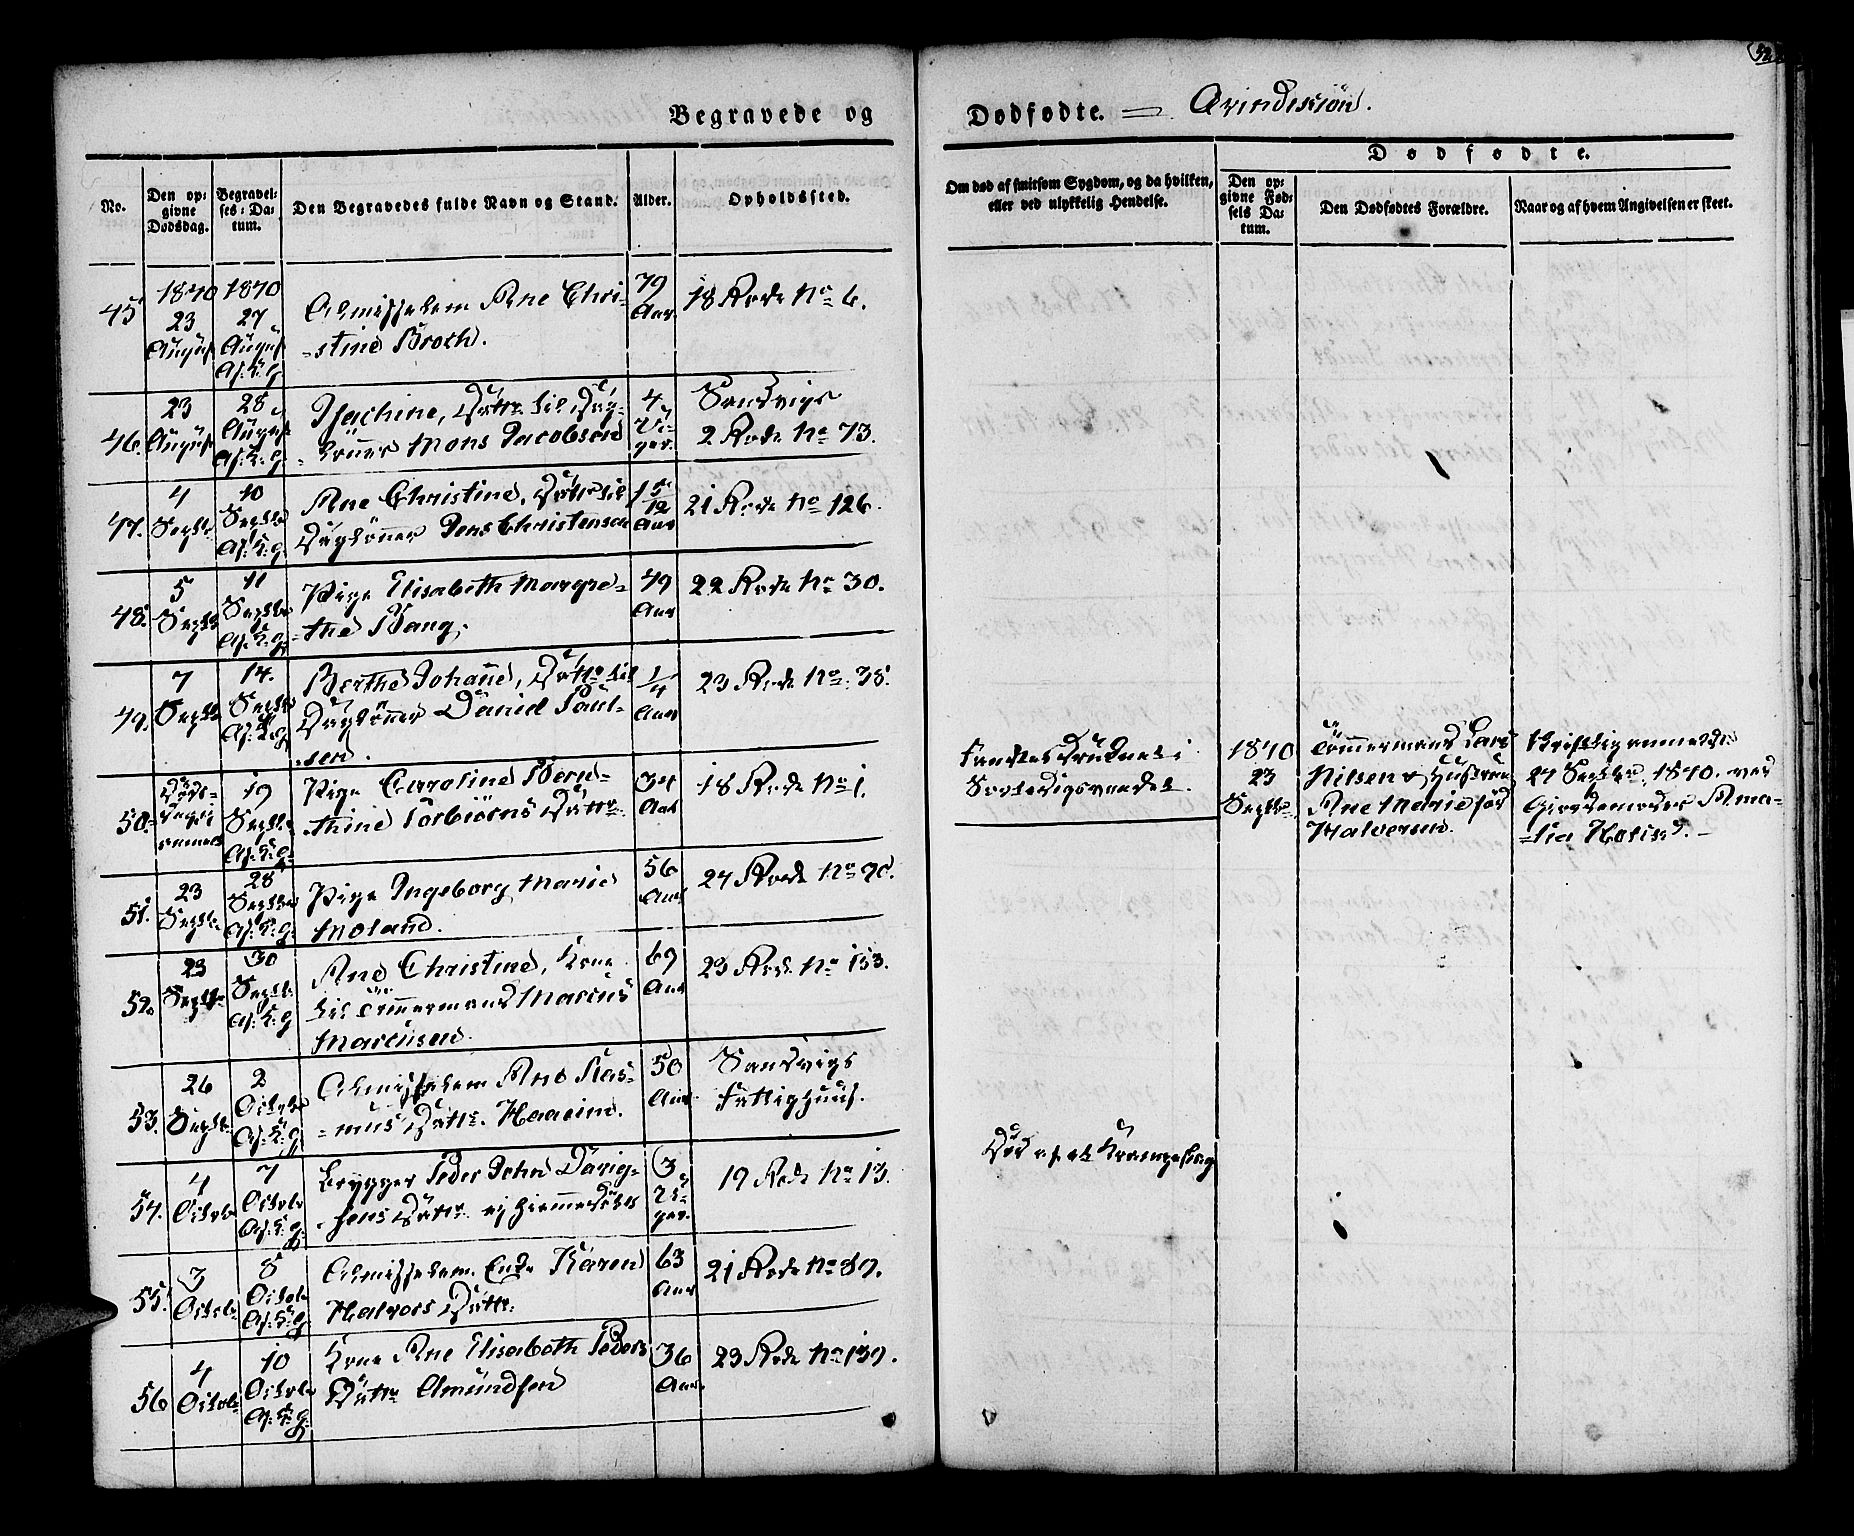 52
Begravede og Dødfødte. = Qvindekiön.
No.
Den op=
givne
Dødsdag.
Begravel=
ses=Da=
tum.
Den Begravedes fulde Navn og Stand.
Alder.
Opholdssted.
Om død af smitsom Sygdom, og da hvilken,
eller ved ulykkelig Hendelse.
Dødfødte.
Den op=
givne Fød=
sels Da=
tum.
Den Dødfødtes Forældre.
Naar og af hvem Angivelsen er skeet.
45
1840
23
August
1840
27
August
Af: K: g.
Almisselem Ane Chri-
-stine Broth.
79
Aar
18 Rode No 6.
46.
23
August
28
August
Af: K: g.
Jachine, Datter til Dag-
-lönner Mons Jacobsen
4
Ü-
ger.
Sandvigs
2 Rode No 73.
47.
4
Septbr.
10
Septbr
Af: K: g.
Ane Christine, Datter til
Daglönner Jens Christensen
1 5/12
Aar
21 Rode No 126.
48.
5
Septb
11
Septbr
Af: K: g.
Pige Elisabeth Margre-
-the Bang.
49
Aar
22 Rode No 30.
49.
7
Septbr
14.
Septbr
Af: K: g.
Berthe Johanne, Datter til
Daglönner Daniel Paul-
-sen.
1/4
Aar
23 Rode No. 38.
50.
19
Septbr.
Af: K: g.
Pige Caroline Bern-
-thine Torbiörns Datter.
34
Aar
18 Rode No 1.
Fundet druknet i
Sortedigsvandet.
1840
23
Septbr.
Tömmermand Lars
Nilsen & Hustrue
Ane Marie föd
Halvorsen.
Skriftlig anmeldt
27 Septbr. 1840. ved
Giordemoder Ama-
-lia Holind. -
51.
23
Septbr.
28
Septbr
Af: K: g.
Pige Ingeborg Marie
Moland.
56
Aar
24 Rode No 90.
52.
23
Septbr.
30
Septbr.
Af: K: g
Ane Christine, Kone
til Tömmermand Marius
Mareusen.
69
Aar
23 Rode No 153.
53.
26
Septbr.
2
Octobr
Af: K: g.
Almisselem Ane Ras-
-mus Datter. Haaeim.
50
Aar
Sandvigs
Fattighuus.
54.
4
Octobr
7
Octobr
Af: K: g.
Brygger Peder John Darig-
-sens Datter ej hiemmedöbt
3
Ü-
ger.
19 Rode No 13.
Död af et Krampeslag
55.
3
Octobr
8
Octobr
Af: K: g.
Almisselem. Enke Karen
Halvors Datter.
63
Aar
21 Rode No 89.
56
4
Octobr
10
Octobr
Af: K: g.
Kone Ane Elisabeth Peders
Datter Amundsen
36
Aar.
23 Rode No 139.